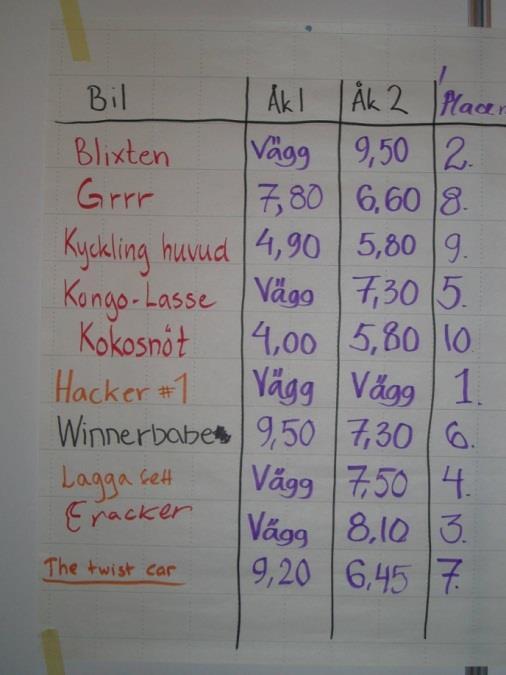 Bil Åk 1 Åk 2 Placer
Blixten Vägg 9,50 2.
Grrr 7,80 6,60 8.
Kyckling huvud 4,90 5,80 9.
Kongo-Lasse Vägg 7,30 5.
Kokosnöt 4,00 5,80 10
Hacker #1 Vägg Vägg 1.
Winnerbabe 9,50 7,30 6.
Lagga Vägg 7,50 4.
Eracker Vägg 8,10 3.
The twist car 9,20 6,45 7.